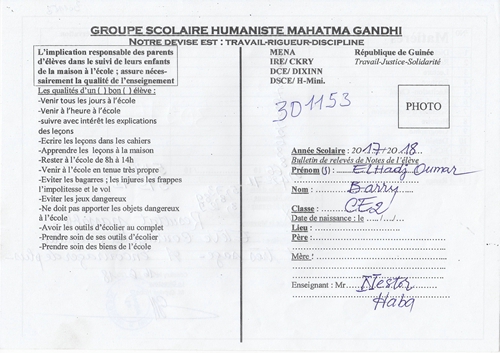 GROUPE SCOLAIRE HUMANISTE MAHATMA GANDHI
NOTRE DEVISE EST : TRAVAIL-RIGUEUR-DISCIPLINE
L'implication responsable des parents
d'élèves dans le suivi de leurs enfants
de la maison à l'école ; assure néces-
sairement la qualité de l'enseignement
Les qualités d'un ( ) bon ( ) élève :
-Venir tous les jours à l'école
-Venir à l'heure à l'école
-suivre avec intérêt les explications
des leçons
-Ecrire les leçons dans les cahiers
-Apprendre les leçons à la maison
- Rester à l'école de 8h à 14h
-Venir à l'école en tenue très propre
-Eviter les bagarres ; les injures les frappes
l'impolitesse et le vol
-Eviter les jeux dangereux
-Ne doit pas apporter les objets dangereux
à l'école
-Avoir les outils d'écolier au complet
-Prendre soin de ses outils d'écolier
-Prendre soin des bien de l'école
MENA
IRE/ CKRY
DCE/ DIXINN
DSCE/ H-Mini.
République de Guinée
Travail-Justice-Solidarité
301153
PHOTO
Année Scolaire : 2017/2018...
Bulletin de relevés de Notes de l'élève
Prénom (s) : ElHadj Oumar
Nom : Barry
Classe : CE2
Date de naissance : le ..../..../....
Lieu :
Père :
Mère :
Enseignant : Mr Nestor
Haba